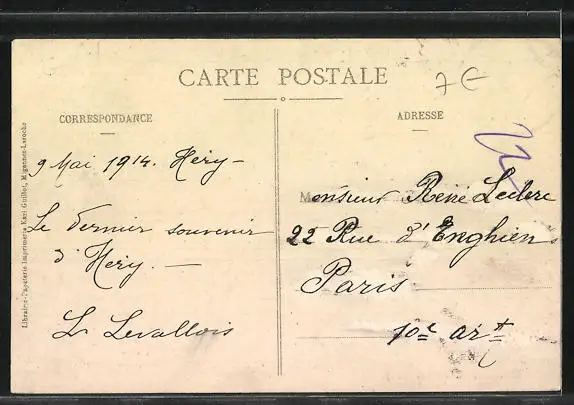 CARTE POSTALE
7€
CORRESPONDANCE
ADRESSE
9 Mai 1914. Héry—
Le dernier souvenir
d'Héry.—
L. Levallois
Monsieur René Leclerc
22 Rue d'Enghien
Paris
10e art
Librairie-Papeterie Imprimerie Karl Guillot, Migennes-Laroche